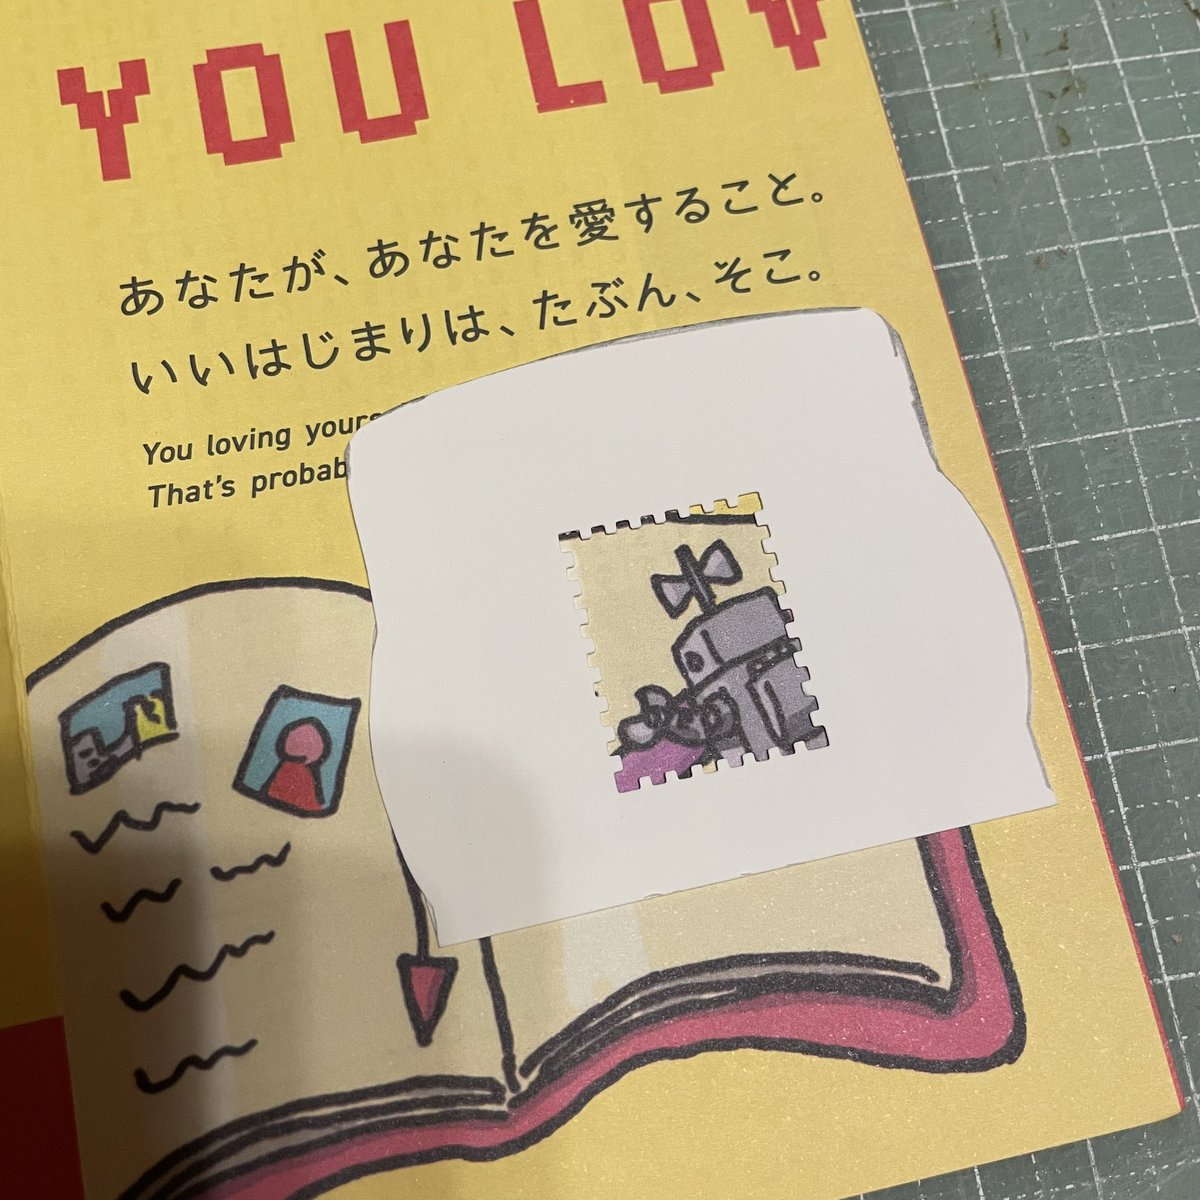 YOU LOV
あなたが、あなたを愛すること。
いいはじまりは、たぶん、そこ。
You loving
That's